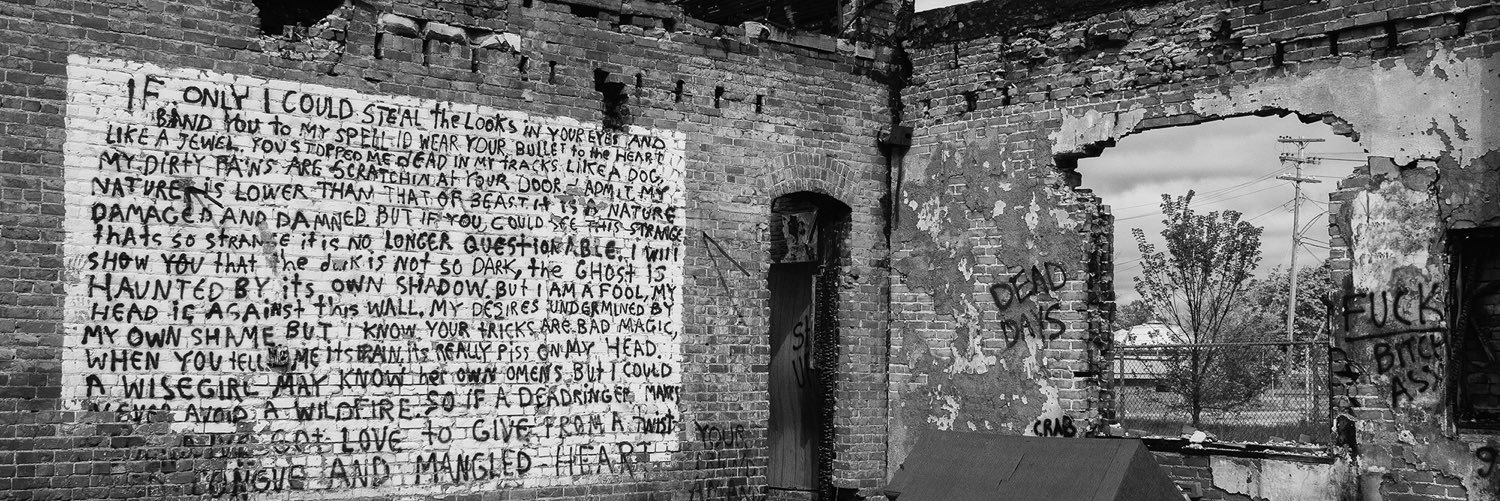 IF ONLY I COULD STEAL the LOOKS IN YOUR EYES AND
BIND YOU to MY SPELL I'D WEAR YOUR BULLET to the HEART
LIKE A JEWEL. YOU STOPPED ME dEAD IN MY tRACKS. LIKE A DOG,
MY DIRTY PAWS ARE SCRATCHIN At YOUR DOOR - ADMIt MY
NATURE iS LOWER THAN THAT OF BEAST. it IS A NATURE
DAMAGED AND DAMNED BUT iF YOU COULD SEE tHIS STRANGE
thAts SO StRANGE it iS NO LONGER QUEStIONABLE. I Will
SHOW YOU tHAt the dark iS NOt SO DARK, the GHOSt IS
HAUNTED BY its OWN SHADOW. BUt I AM A FOOL, MY
HEAD iS AGAiNSt tHiS WALL, MY DESIRES UNDERMINED BY
MY OWN SHAME BUt I KNOW YOUR tRICKS ARE BAD MAGIC,
WHEN YOU tell ME ItS RAIN. its REALLY PISS ON MY HEAD.
A WISEGIRL MAY KNOW her OWN OMENS. BUt I COULD
NEVER AVOID A WILDFIRE. SO IF A DEADRINGER MAKES
GOt LOVE to GIVE FROM A tWISt
tONGUE AND MANGLED HEARt
DEAD
DAYS
CRAB
YOUR
FUCK
BITCH
ASS